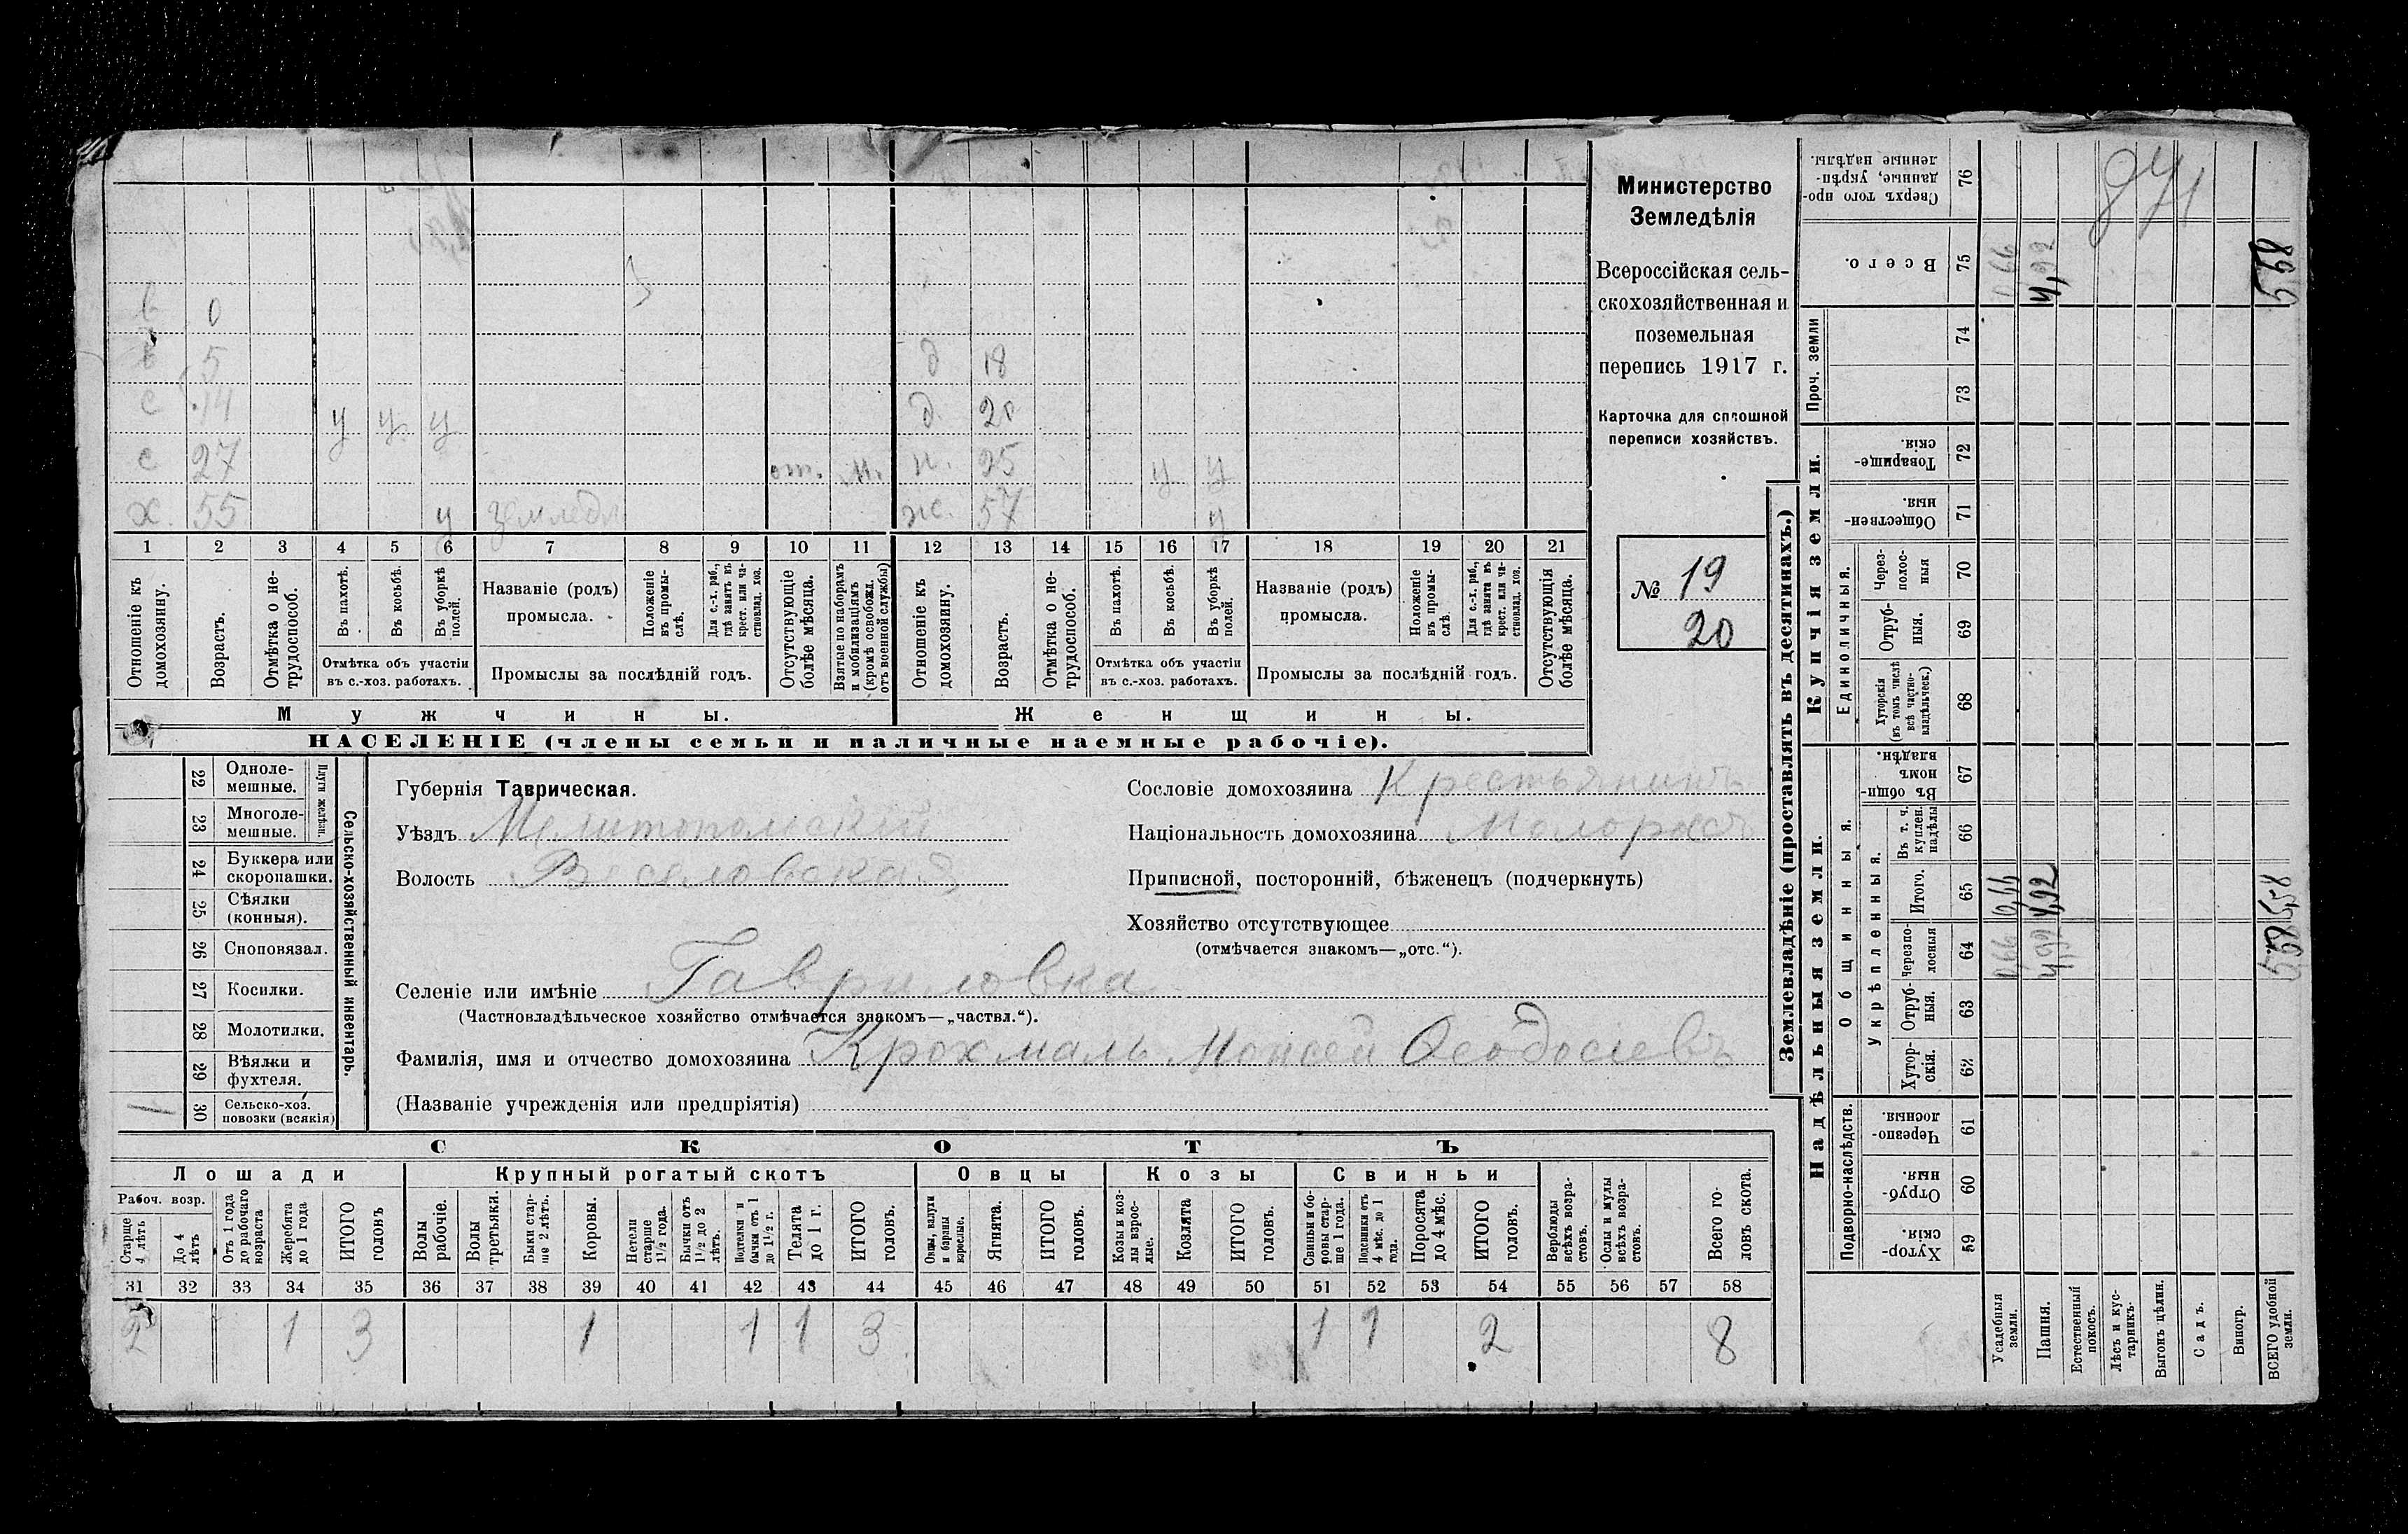 Министерство
Земледѣлія
Всероссійская сель-
скохозяйственная и
поземельная
перепись 1917 г.
Карточка для сплошной
переписи хозяйствъ.
№ 19
20
в 0
в 5 д 18
с 14 у у у д. 20
с 27 от. м. н. 25 у у
х. 55 у землед. ж. 57 у
1 2 3 4 5 6 7 8 9 10 11 12 13 14 15 16 17 18 19 20 21
Отношеніе къ домохозяину.
Возрастъ.
Отмѣтка о не-трудоспособ.
Въ пахотѣ.
Въ косьбѣ.
Въ уборкѣ полей.
Отмѣтка объ участіи
въ с.-хоз. работахъ.
Названіе (родъ)
промысла.
Положеніе въ промы-слѣ.
Для с.-х. раб., гдѣ занятъ въ крест. или ча-стновлад. хоз.
Промыслы за послѣдній годъ.
Отсутствующіе болѣе мѣсяца.
Взятые по наборамъ и мобилизаціямъ (кромѣ освобожд. отъ военной службы)
Отношеніе къ домохозяину.
Возрастъ.
Отмѣтка о не-трудоспособ.
Въ пахотѣ.
Въ косьбѣ.
Въ уборкѣ полей.
Отмѣтка объ участіи
въ с.-хоз. работахъ.
Названіе (родъ)
промысла.
Положеніе въ промы-слѣ
Для с.-х. раб., гдѣ занята въ крест. или ча-стновлад. хоз.
Промыслы за послѣдній годъ.
Отсутствующія болѣе мѣсяца.
Мужчины. Женщины.
НАСЕЛЕНІЕ (члены семьи и наличные наемные рабочіе).
Сельско-хозяйственный инвентарь.
Плуги желѣзн.
22 Одноле-мешные.
23 Многоле-мешные.
24 Буккера или скоропашки.
25 Сѣялки (конныя).
26 Сноповязал.
27 Косилки.
28 Молотилки.
29 Вѣялки и фухтеля.
1 30 Сельско-хоз. повозки (всякія)
Губернія Таврическая.
Уѣздъ Мелитопольскій
Волость Веселовская
Сословіе домохозяина Крестьянинъ
Національность домохозяина Малоросъ
Приписной, посторонній, бѣженецъ (подчеркнуть)
Хозяйство отсутствующее
(отмѣчается знакомъ—„отс.“).
Селеніе или имѣніе Гавриловка
(Частновладѣльческое хозяйство отмѣчается знакомъ—„частвл.“).
Фамилія, имя и отчество домохозяина Крохмаль Моисей Ѳеодосіевъ
(Названіе учрежденія или предпріятія)
СКОТЪ
Лошади Крупный рогатый скотъ Овцы Козы Свиньи
Рабоч. возр.
Старше 4 лѣтъ
До 4 лѣтъ
Отъ 1 года до рабочаго возраста
Жеребята до 1 года
ИТОГО головъ
Волы рабочіе.
Волы третьяки.
Быки стар-ше 2 лѣтъ.
Коровы.
Нетели старше 1½ года.
Бычки отъ 1½ до 2 лѣтъ.
Подтелки и бычки отъ 1 до 1½ г.
Телята до 1 г.
ИТОГО головъ.
Овцы, валухи и бараны взрослые.
Ягнята.
ИТОГО головъ.
Козы и коз-лы взрос-лые.
Козлята
ИТОГО головъ.
Свиньи и бо-ровы стар-ше 1 года.
Подсвинки отъ 4 мѣс. до 1 года.
Поросята до 4 мѣс.
ИТОГО головъ.
Верблюды всѣхъ возра-стовъ.
Ослы и мулы всѣхъ возра-стовъ.
Всего го-ловъ скота.
31 32 33 34 35 36 37 38 39 40 41 42 43 44 45 46 47 48 49 50 51 52 53 54 55 56 57 58
2 1 3 1 1 1 3 1 1 2 8
Землевладѣніе (проставлять въ десятинахъ.)
Купчія земли.
Надѣльныя земли.
Проч. земли
Единоличныя.
Общинныя.
Укрѣпленныя.
Подворно-наслѣдств.
Сверхъ того про-данные, укрѣп-ленные надѣлы. 76
Всего. 75 0,66 4,92 5,58
74
73
Товарище-скія. 72
Обществен-ныя. 71
Через-полос-ныя 70
Отруб-ныя. 69
Хуторскія (въ томъ числѣ всѣ частно-владѣльческ.) 68
Въ общи-номъ владѣн. 67
Въ т. ч. куплен. надѣлы 66
Итого. 65 0,66 4,92 5,58
Черезпо-лосныя 64 0,66 4,92 5,58
Отруб-ныя. 63
Хутор-скія. 62
Черезпо-лосныя. 61
Отруб-ныя. 60
Хутор-скія. 59
Усадебныя земли.
Пашня.
Естественный покосъ.
Лѣсъ и кус-тарникъ.
Выгонъ цѣлин.
Садъ.
Виногр.
ВСЕГО удобной земли.